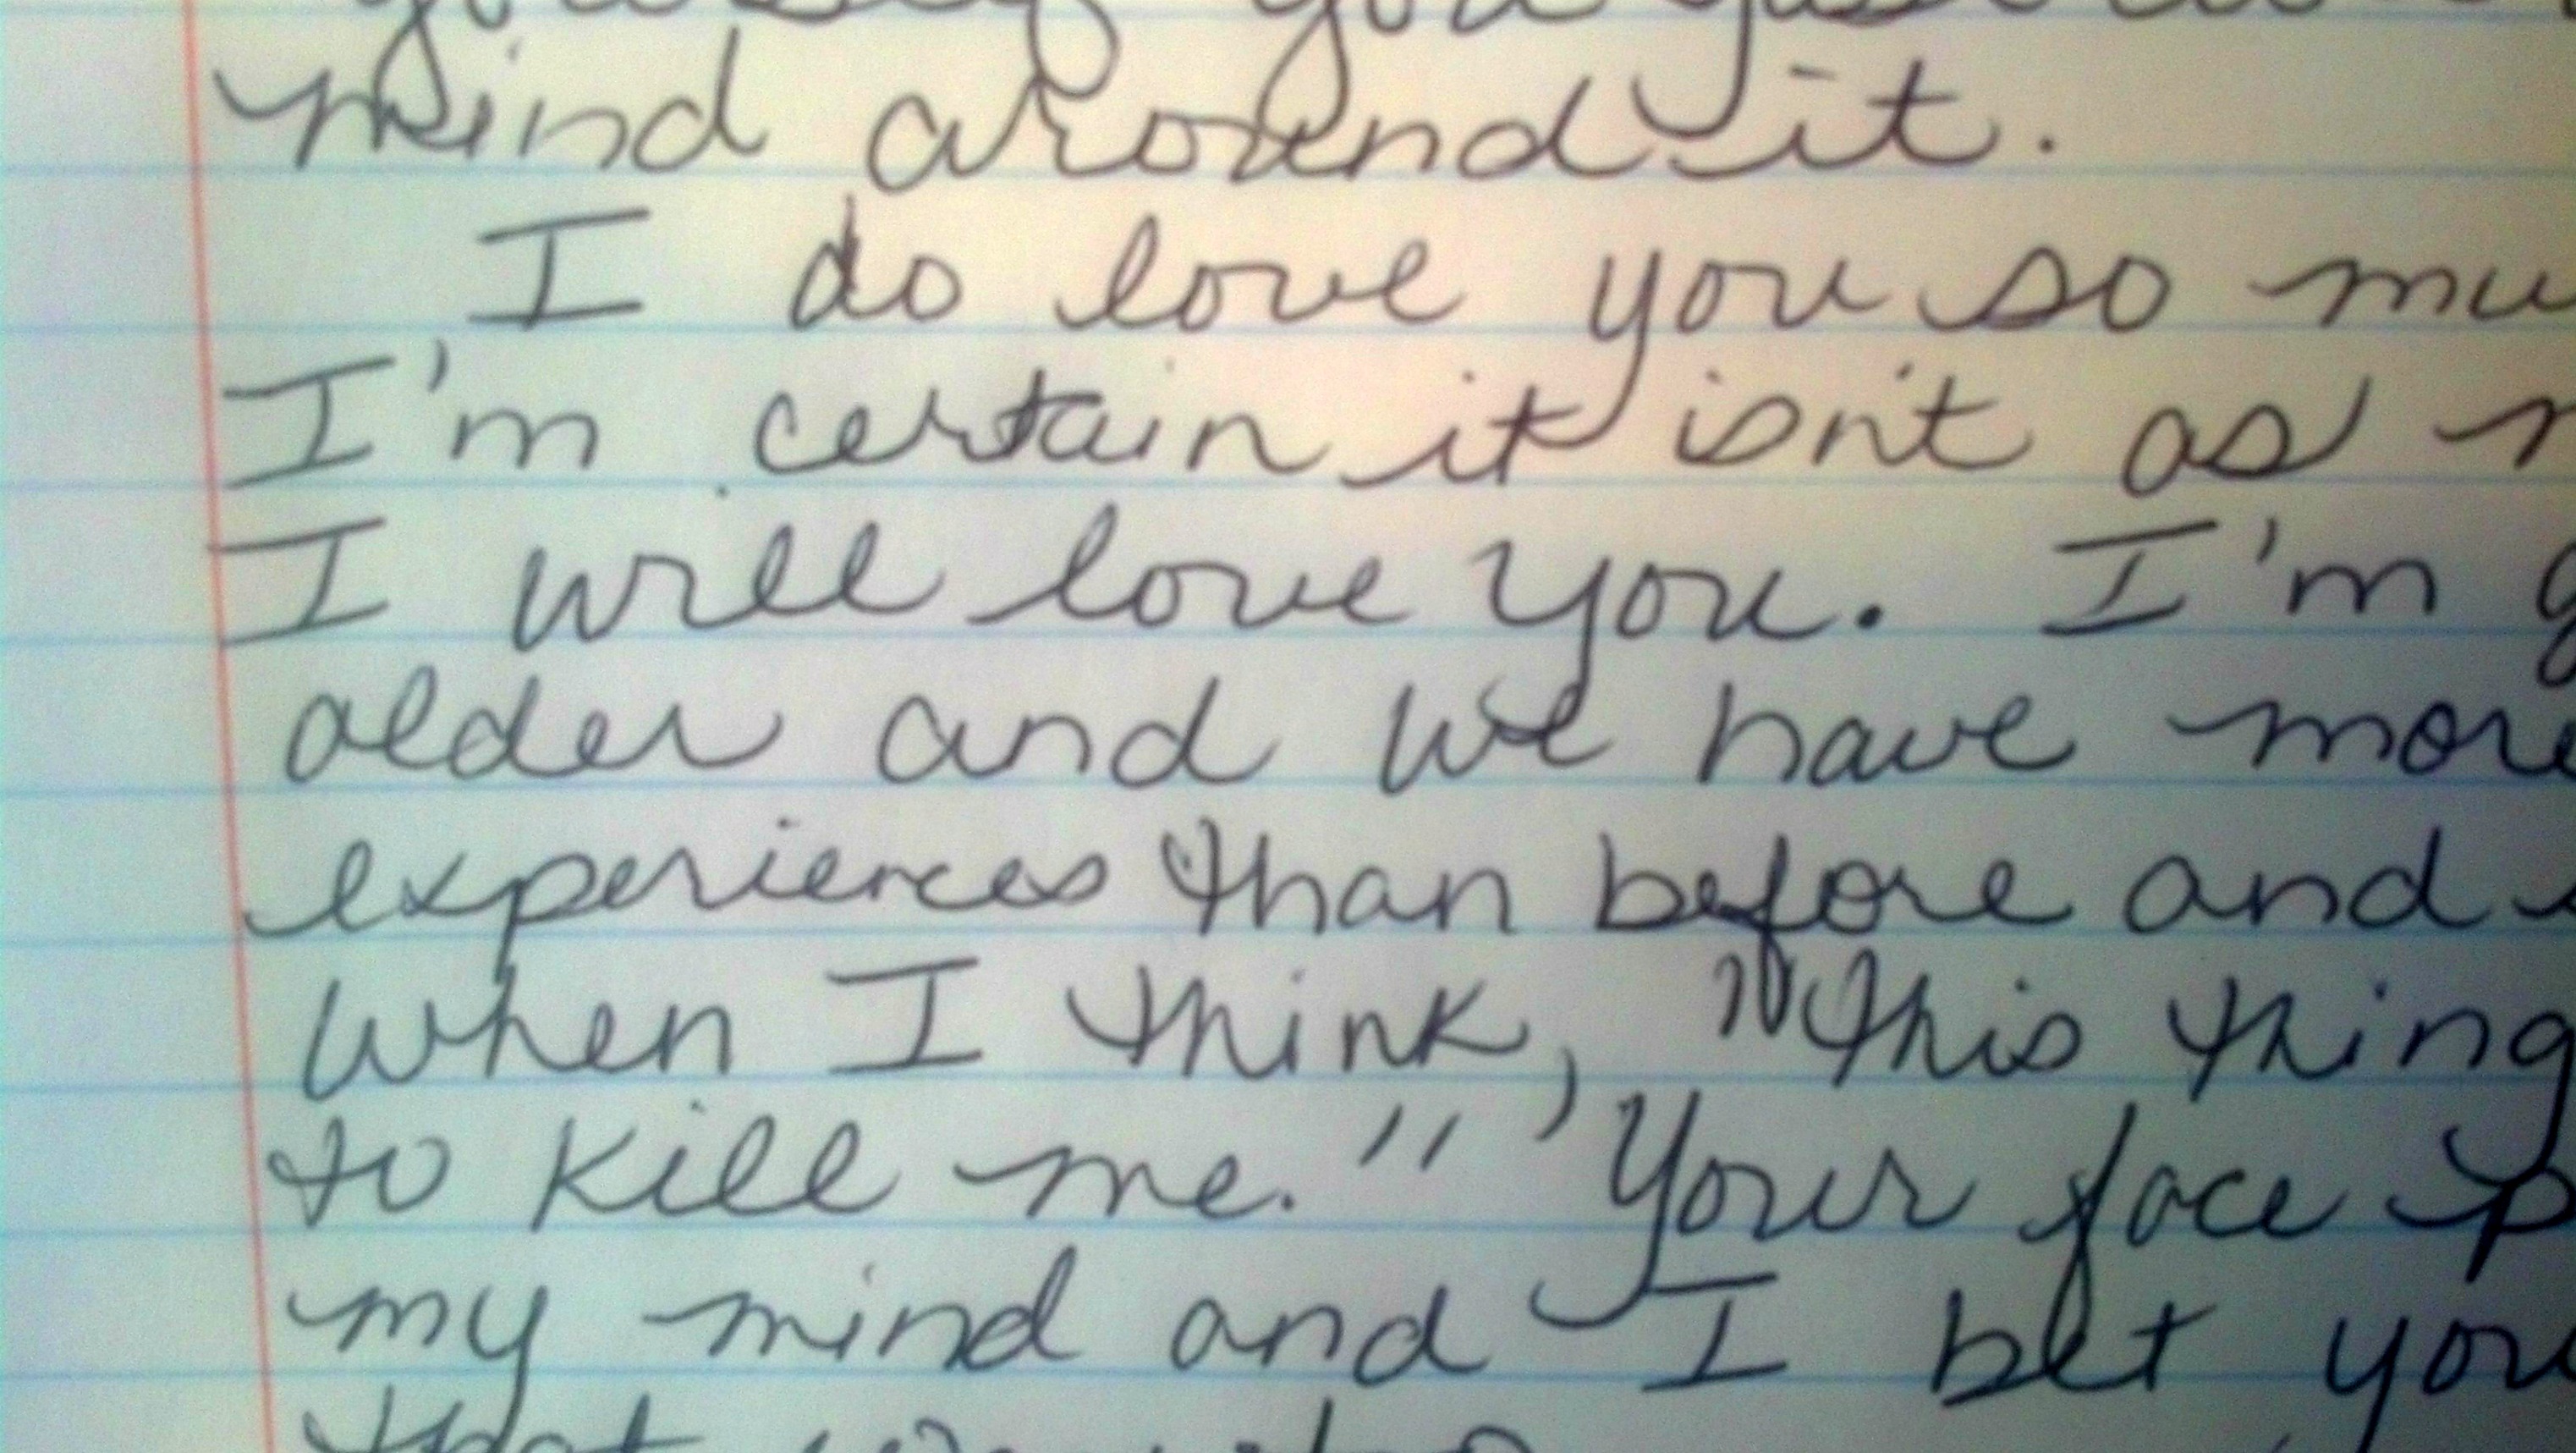 yourself you just
mind around it.
I do love you so mu
I'm certain it isn't as
I will love you. I'm g
older and we have more
experiences than before and
when I think, "this thing
to kill me." Your face p
my mind and I bet you
that